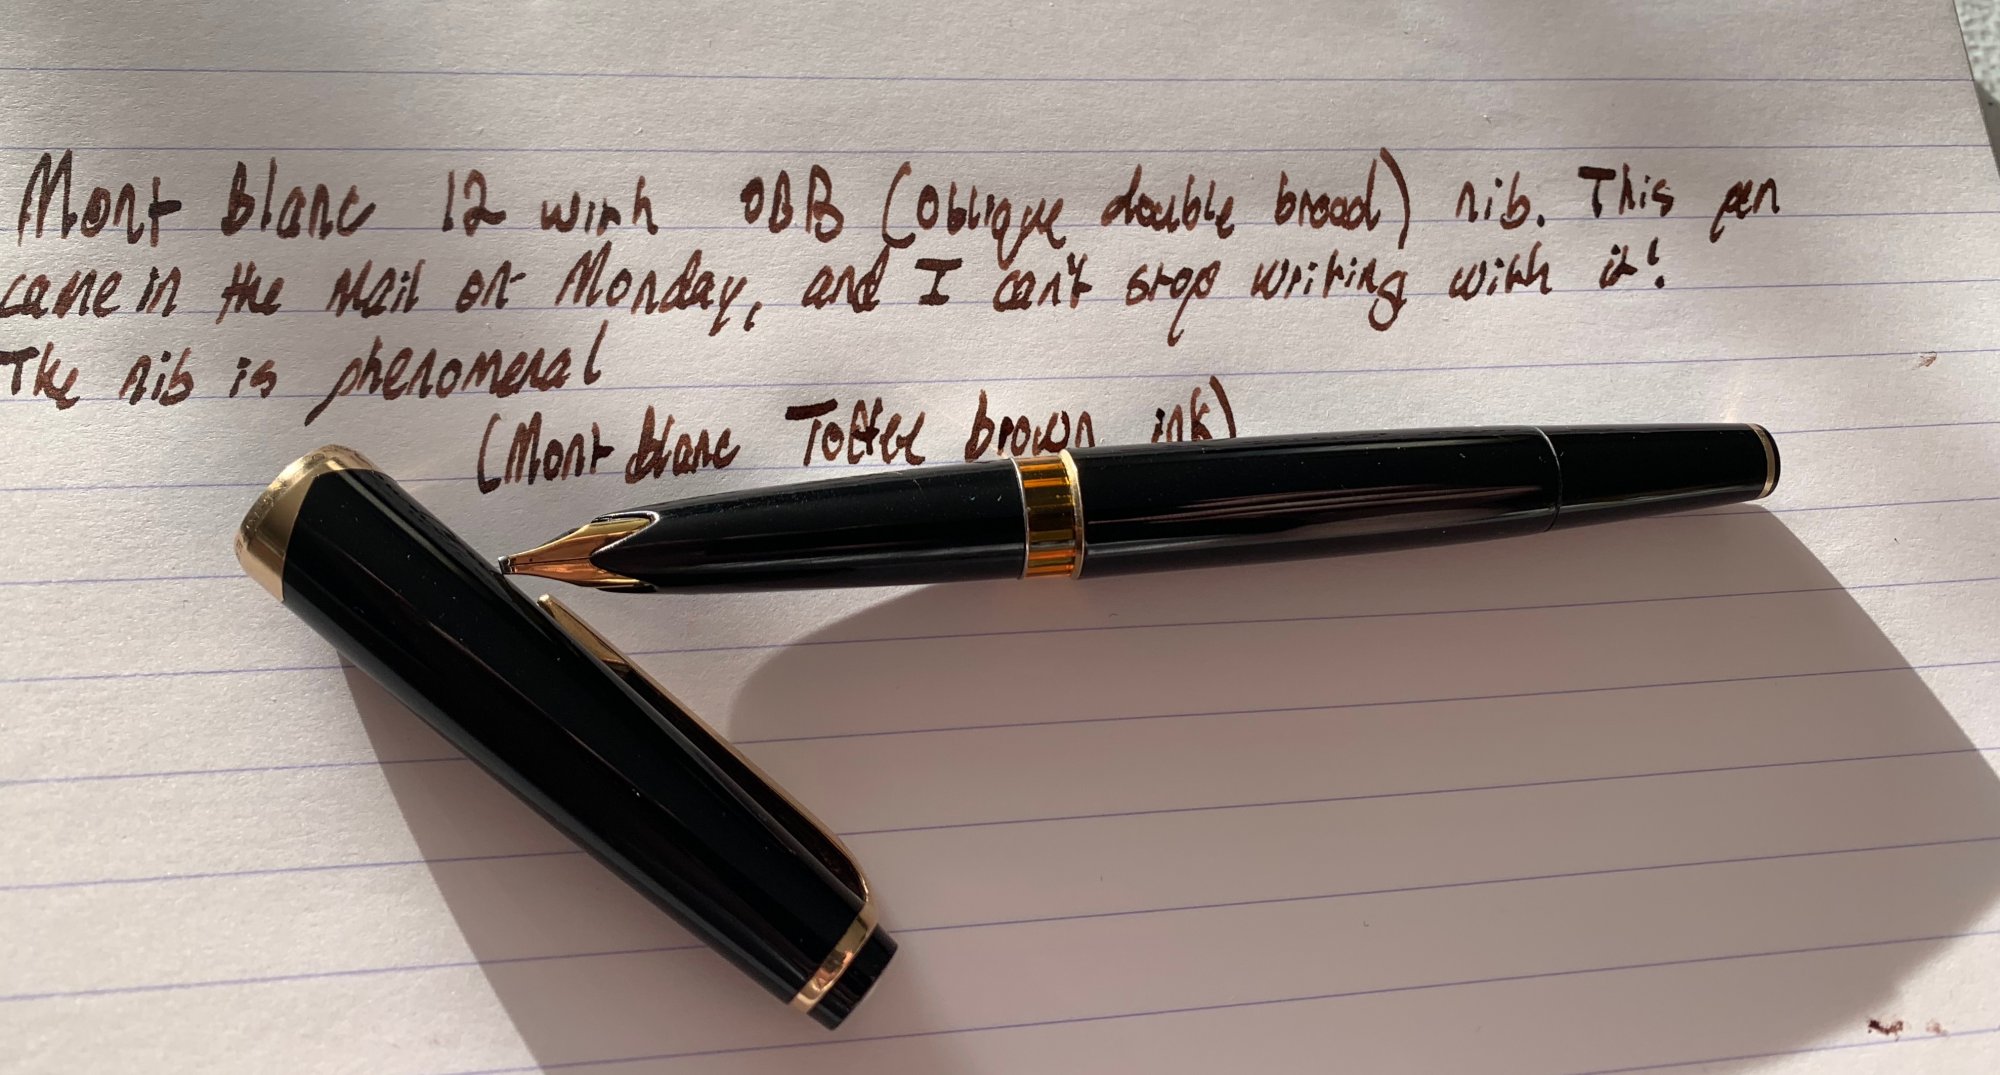 Mont Blanc 12 with OBB (Oblique double broad) nib. This pen
came in the mail on Monday, and I can't stop writing with it!
The nib is phenomenal
(Mont Blanc Toffee brown ink)